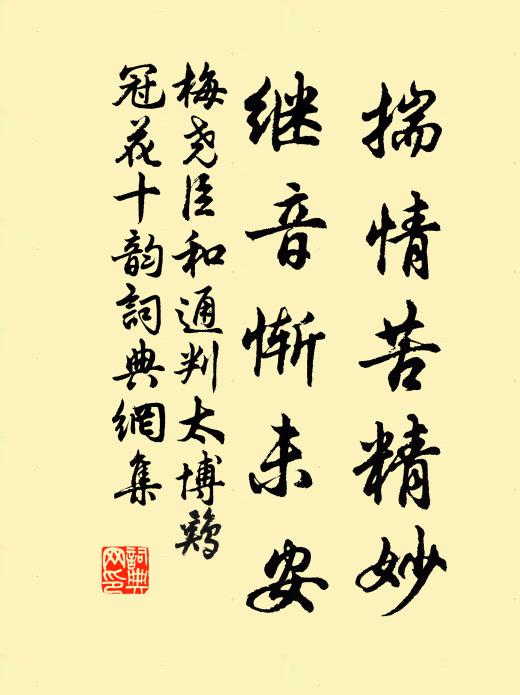 揣情苦精妙
继音惭未安
梅尧臣和通判太博鸡
冠花十韵詞典網集
詞典网印